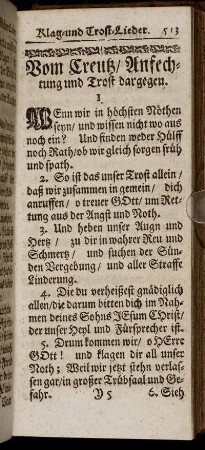 Klag-und Trost-Lieder. 513
Vom Creutz/ Anfech-
tung und Trost dargegen.
I.
WEnn wir in höchsten Nöthen
seyn/ und wissen nicht wo aus
noch ein? Und finden weder Hülff
noch Rath/ob wir gleich sorgen früh
und spath.
2. So ist das unser Trost allein/
daß wir zusammen in gemein/ dich
anruffen/ o treuer GOtt/ um Ret-
tung aus der Angst und Noth.
3. Und heben unser Augn und
Hertz/ zu dir in wahrer Reu und
Schmertz/ und suchen der Sün-
den Vergebung/ und aller Straffe
Linderung.
4. Die du verheißest gnädiglich
allen/die darum bitten dich im Nah-
men deines Sohns JEsum CHrist/
der unser Heyl und Fürsprecher ist.
5. Drum kommen wir/ o HErre
GOtt! und klagen dir all unser
Noth; Weil wir jetzt stehn verlas-
sen gar/in großer Trübsaal und Ge-
fahr. Y 5 6. Sieh